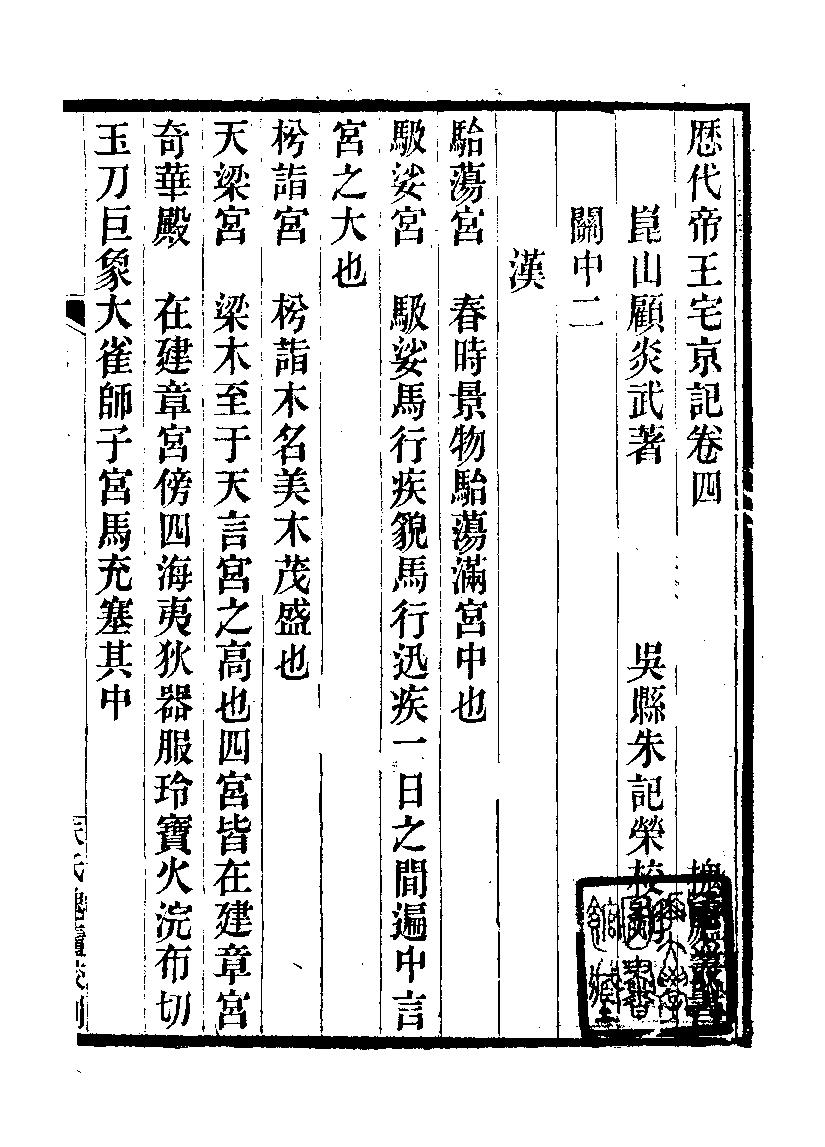 歷代帝王宅京記卷四
崑山顧炎武著　吳縣朱記榮校
關中二
漢
駘蕩宮　春時景物駘蕩滿宮中也
馺娑宮　馺娑馬行疾貌馬行迅疾一日之間遍中言
宮之大也
枍詣宮　枍詣木名美木茂盛也
天梁宮　梁木至于天言宮之高也四宮皆在建章宮
奇華殿　在建章宮傍四海夷狄器服玲寶火浣布切
玉刀巨象大雀師子宮馬充塞其中